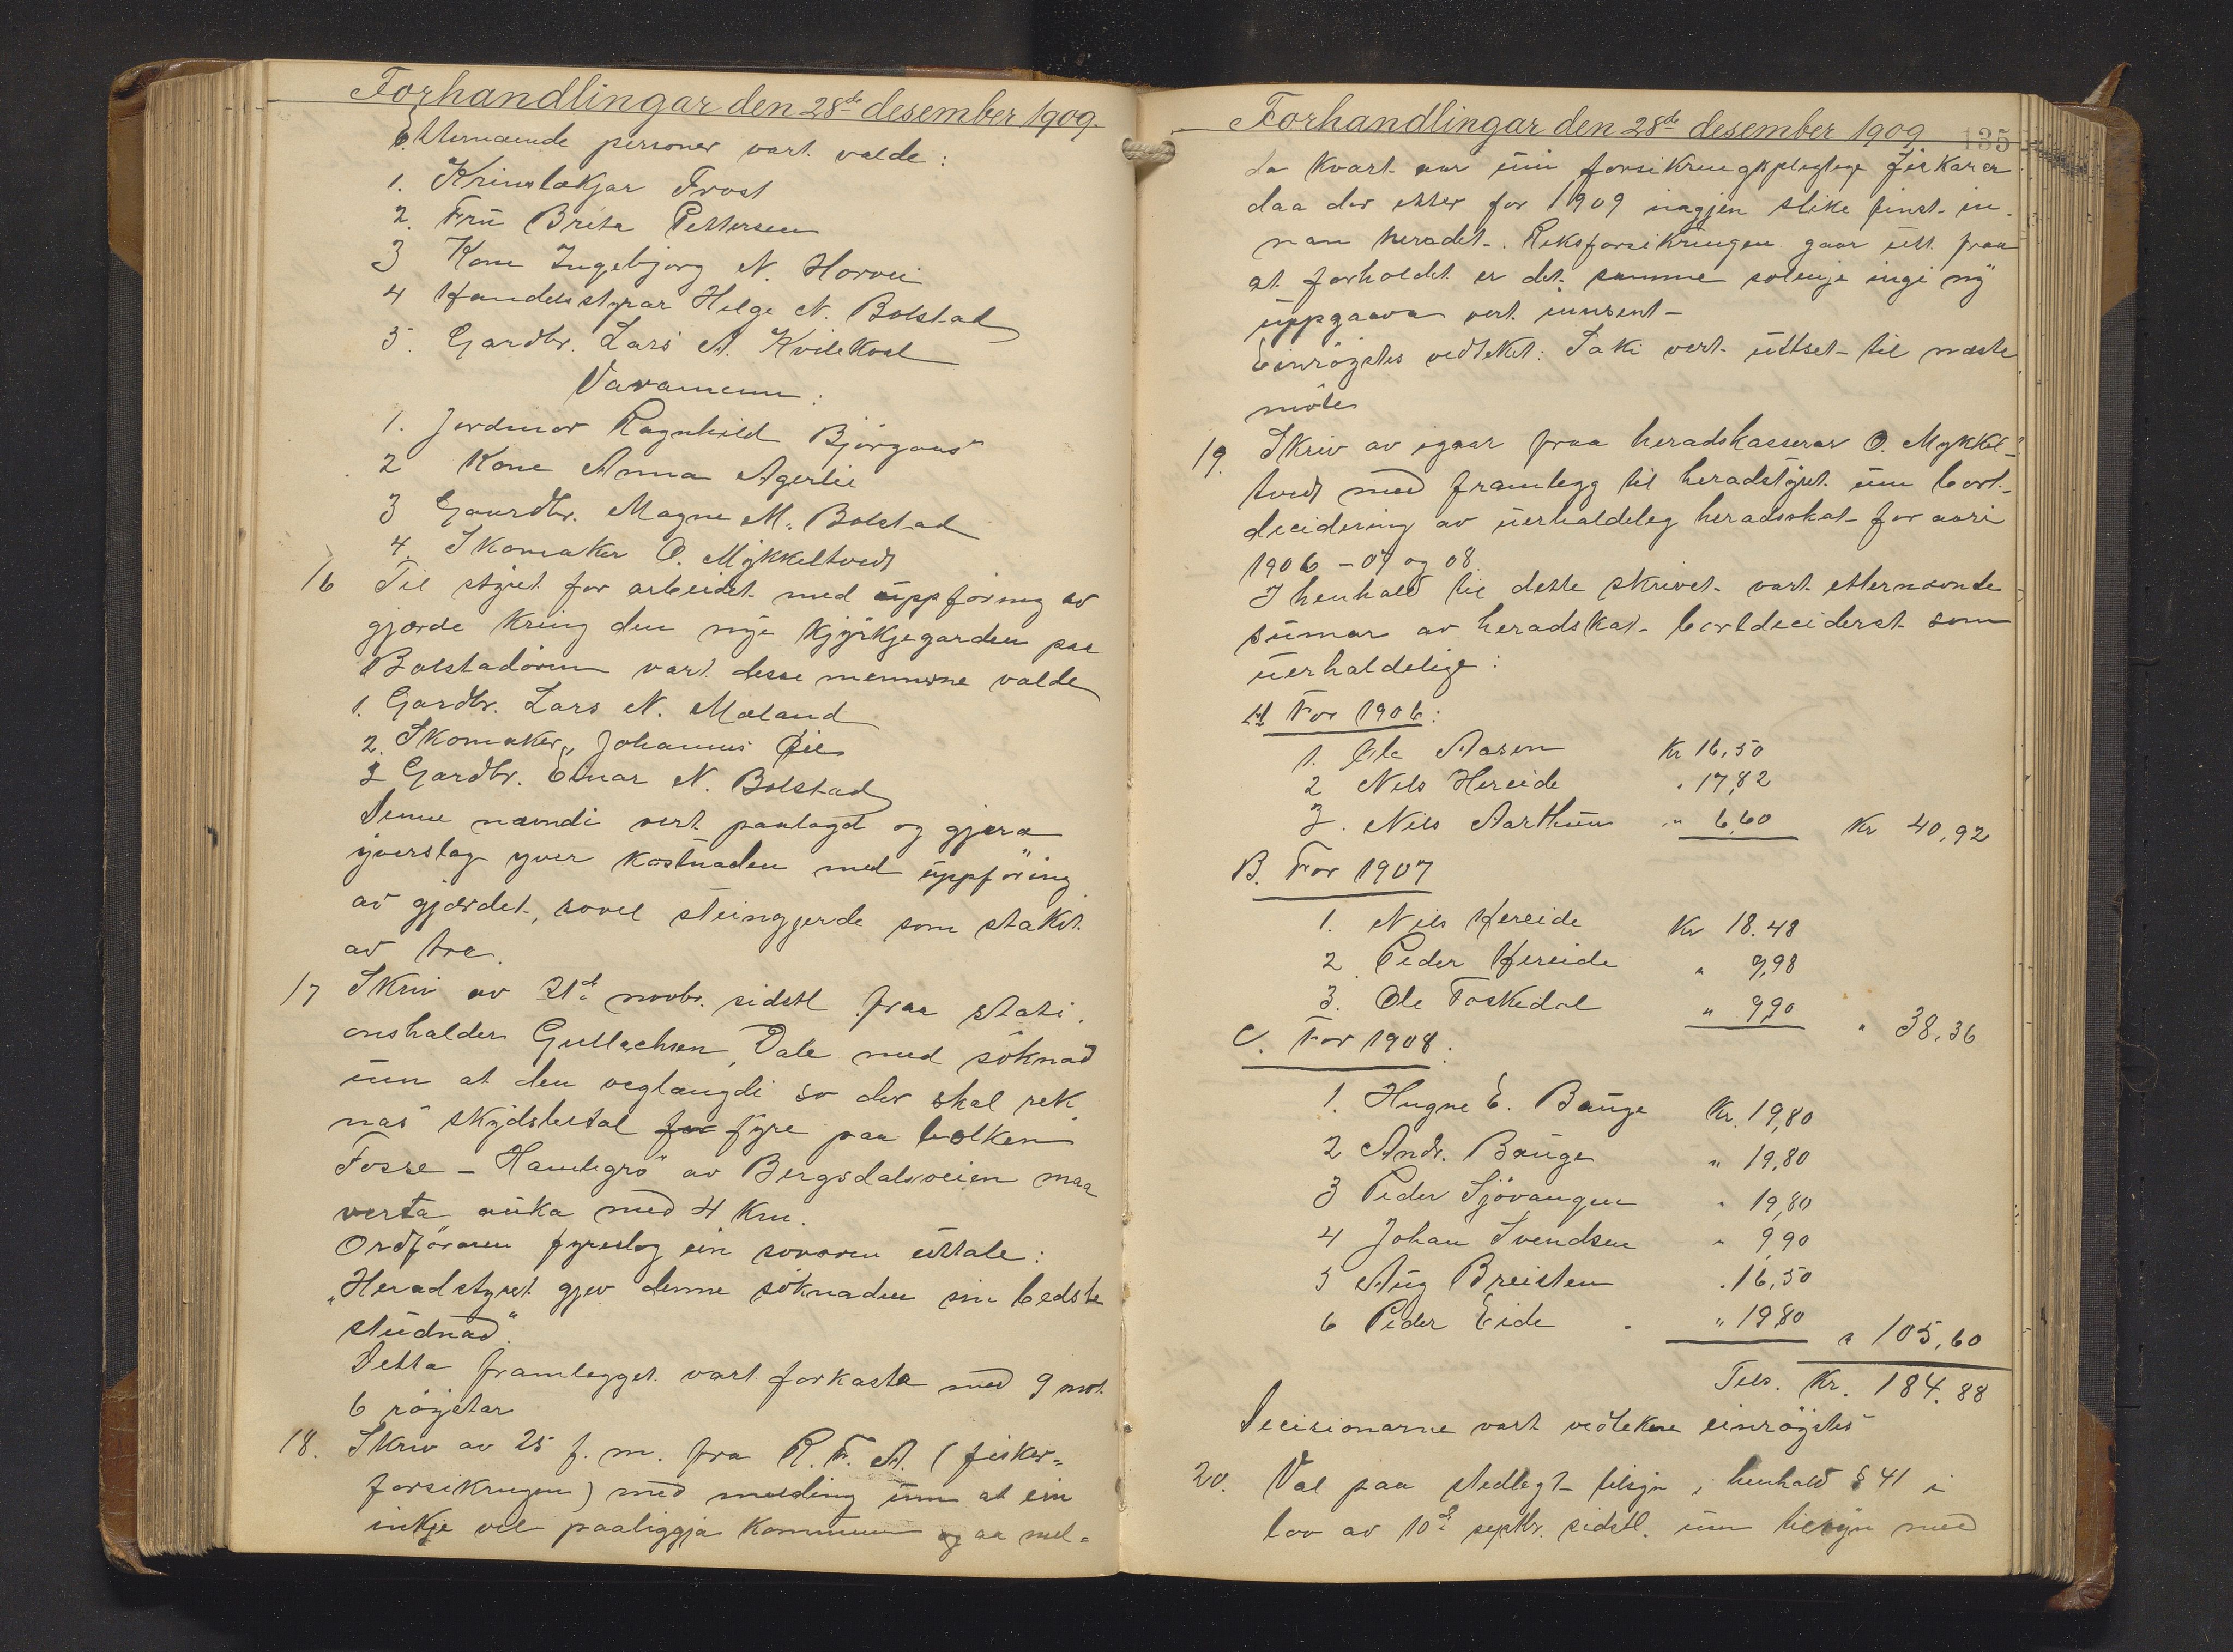 Forhandlingar den 28de desember 1909.
Etternæmde personer vart valde:
1. Krinslækjar Frost
2. Fru Brita Pettersen
3 Kone Ingebjorg N. Horvei
4 Handelsstyrar Helge N. Bolstad
5. Gardbr. Lars A. Kvilekval
Varamenn:
1. Jordmor Ragnhild Björgaas
2 Kone Anna Agerlie
3 Gaardbr. Magne M. Bolstad
4. Skomaker O. Mykkeltvedt
16 Til styret for arbeidet med uppföring av
gjærde kring den nye kjyrkjegarden paa
Bolstadören vart desse mennerne valde
1. Gardbr. Lars N. Mæland
2. Skomaker Johannes Øie
3 Gardbr. Einar N. Bolstad
Denne næmdi vert paalagd og gjera
yverslag yver kostnaden med uppföring
av gjærdet, sovel steingjerde som stakit
av tre.
17 Skriv av 21de novbr. sidstl fraa stati-
onshalder Gullachsen, Dale med söknad
um at den veglængdi so der skal rek
nas skydsbetal for fyre paa bolken
Fosse - Hamlegrö av Bergsdalsveien maa
verta auka med 4 km.
Ordföraren fyreslog ein sovoren uttale:
"Heradstyret gjev denne söknaden sin bedste
studnad".
Detta framlegget vart forkasta med 9 mot
6 röystar
18. Skriv av 25 f. m. fra R. F. A. (fisker-
forsikringen) med melding um at ein
inkje vil paaliggja kommunen og aa mel-
Forhandlingar den 28de desember 1909
135
da kvart aar um forsikringspligtige fiskarar
daa der etter for 1909 ingjen slike finst in-
nan heradet. Riksforsikringen gaar utt fraa
at forholdet er det samme solenje ingi ny
uppgaava vert innsent-
Einröystes vedteket: Saki vert utset til næste
möte
19. Skriv av igaar fraa heradskasserar O. Mykkel-
tvedt med framlegg til heradstyret um bort-
decidering av uerhaldeleg heradsskat for aari
1906 - 07 og 08.
I henhald til dette skrivet vart etternæmnde
sumar av heradskat bortdeciderat som
uerhaldelige:
A For 1906:
1. Ole Aasen Kr 16,50
2 Nils Hereide " 17,82
3. Nils Aarthun " 6,60 Kr 40,92
B. For 1907
1. Nils Hereide Kr 18.48
2 Peder Hereide " 9,98
3. Ole Foskedal " 9,90 " 38,36
C. For 1908.
1. Hugne E. Bauge Kr. 19,80
2 Andr. Bauge " 19,80
3 Peder Sjövangen " 19,80
4 Johan Svendsen " 9,90
5 Aug Breisten " 16,50
6 Peder Eide " 19,80 " 105,60
Tils. Kr. 184.88
Decisionarne vart vedtekne einröystes
20. Val paa stedlegt tilsyn i henhald § 41 i
lov av 10de septbr. sidstl. um tilsyn med